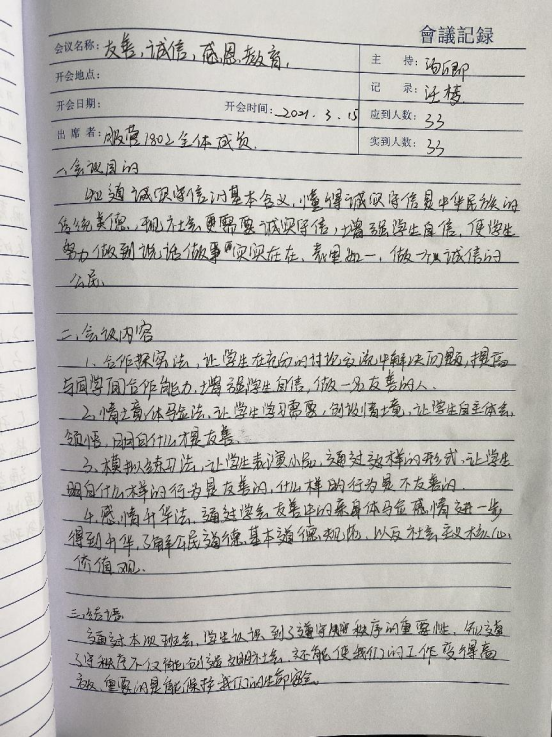 會議記録
会议名称：友善，诚信，感恩教育，
主 持：
开会地点：
记 录：汪梦
开会日期：
开会时间：2021.3.15
应到人数：33
出 席 者：服营1802全体成员
实到人数：33
一、会议目的
知道诚实守信的基本含义，懂得诚实守信是中华民族的
传统美德，现代社会更需要诚实守信，增强学生自信，使学生
努力做到说话做事实实在在，表里如一，做一诚信的
公民。
二、会议内容
1、合作探究法，让学生在充的讨论交流中解决问题，提高
与同学间合作能力，增强学生自信，做一名友善的人。
2、情境体验法，让学生学习需要，创设情境，让学生自主体会，
领悟，明白什么才是友善。
3、模拟练习法，让学生表演小品，通过这样的形式，让学生
明白什么样的行为是友善的，什么样的行为是不友善的。
4、感情升华法，通过学会友善中的亲身体验感情进一步
得到升华，了解公民道德基本道德规范，以及社会主义核心
价值观。
三、结语
通过本次班会，学生认识到了遵守秩序的重要性，知道
了守秩序不仅能创造文明社会，还能使我们的工作变得高
效，重要的是能保护我们的生命安全。